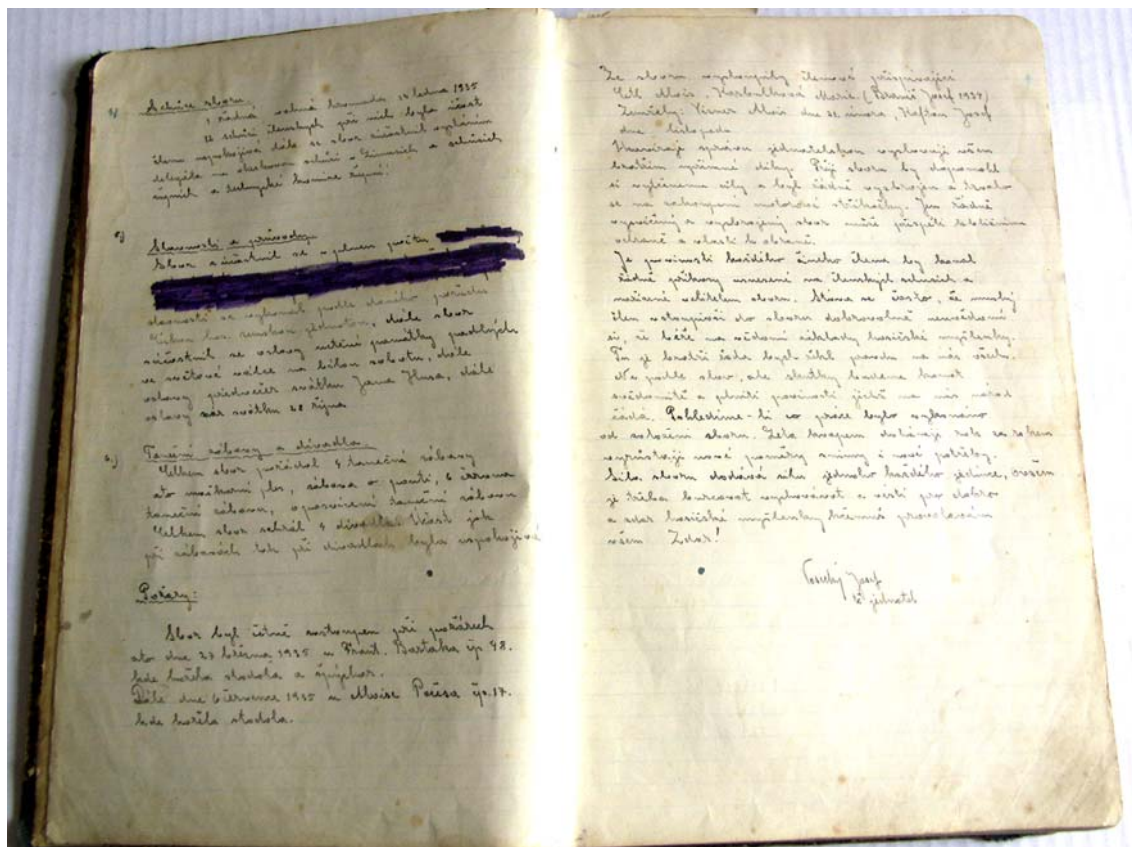 Schůze sboru.
1 řádná valná hromada, ledna 1935
12 schůzí členských při nich byla účast
členů uspokojivá dále se sbor súčastnil vysláním
delegáta na okrskovou schůzi v a schůzích
a komise
Slavnosti a průvody.
Sbor súčastnil se v plném počtu
slavnosti se vykonal podle daného pořadu
has. jednotou, dále sbor
súčastnil se oslavy uctění památky padlých
ve světové válce na bílou sobotu, dále
oslavy předvečer svátku Jana Husa, dále
oslavy svátku 28 října
Taneční zábavy a divadla.
Celkem sbor pořádal 4 taneční zábavy
a to maškarní ples, zábava o pouti, 6 června
taneční zábava, taneční zábava
Celkem sbor sehrál 4 divadla. Účast jak
při zábavách tak při divadlech byla uspokojivá
Požáry:
Sbor byl četně zastoupen při požárech
a to dne 27 března 1935 u Frant. Bartáka čp. 48.
kde hořela stodola a špýchar.
Dále dne 6 července 1935 u Aloise Počesa čp. 17.
kde hořela stodola.
Ze sboru vystoupily členové přispívající
Alois, Marie (Josef 1934)
Zemřely: Alois dne 21 února, Josef
dne listopadu
správu jednatelskou vyslovuji všem
bratřím upřímné díky. Přeji sboru by dopomohl
si vytčenému cíly a byl řádně vyzbrojen a
se na zakoupení motorové stříkačky. Jen řádně
vycvičený a vyzbrojený sbor může přispěti k bližnímu
ochraně a vlasti k obraně.
Je povinností každého činného člena by konal
řádně příkazy usnesené na členských schůzích a
nařízené velitelem sboru. Stává se často, že mnohý
člen vstoupivší do sboru dobrovolně neuvědomí
si, že béře na vědomí základy hasičské myšlenky.
To je bratři řada bych řekl pravda na nás všech.
Ne podle slov, ale skutky budeme konat
svědomitě a plniti povinosti jež na nás národ
žádá. Pohledíme-li co práce bylo vykonáno
od založení sboru. Léta kvapem dohánějí rok za rokem
vyrůstají nové poměry směry i nové potřeby.
Síla sboru dodává sílu jednoho každého jedince, ovšem
je třeba burcovat vychovávat a vésti pro dobro
a zdar hasičské myšlenky k čemuž provolávám
všem Zdar!
Josef
jednatel